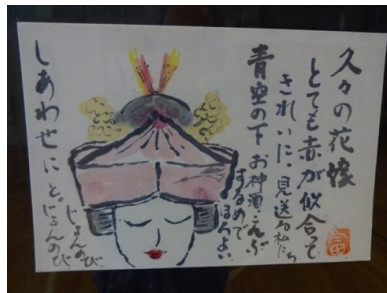 久々の花嫁
とても赤が似合って
きれいに、見送る私たち
青空の下お神酒、こんぶ
するめで
ほろよい
しあわせにと。じょんのび
じょんのび